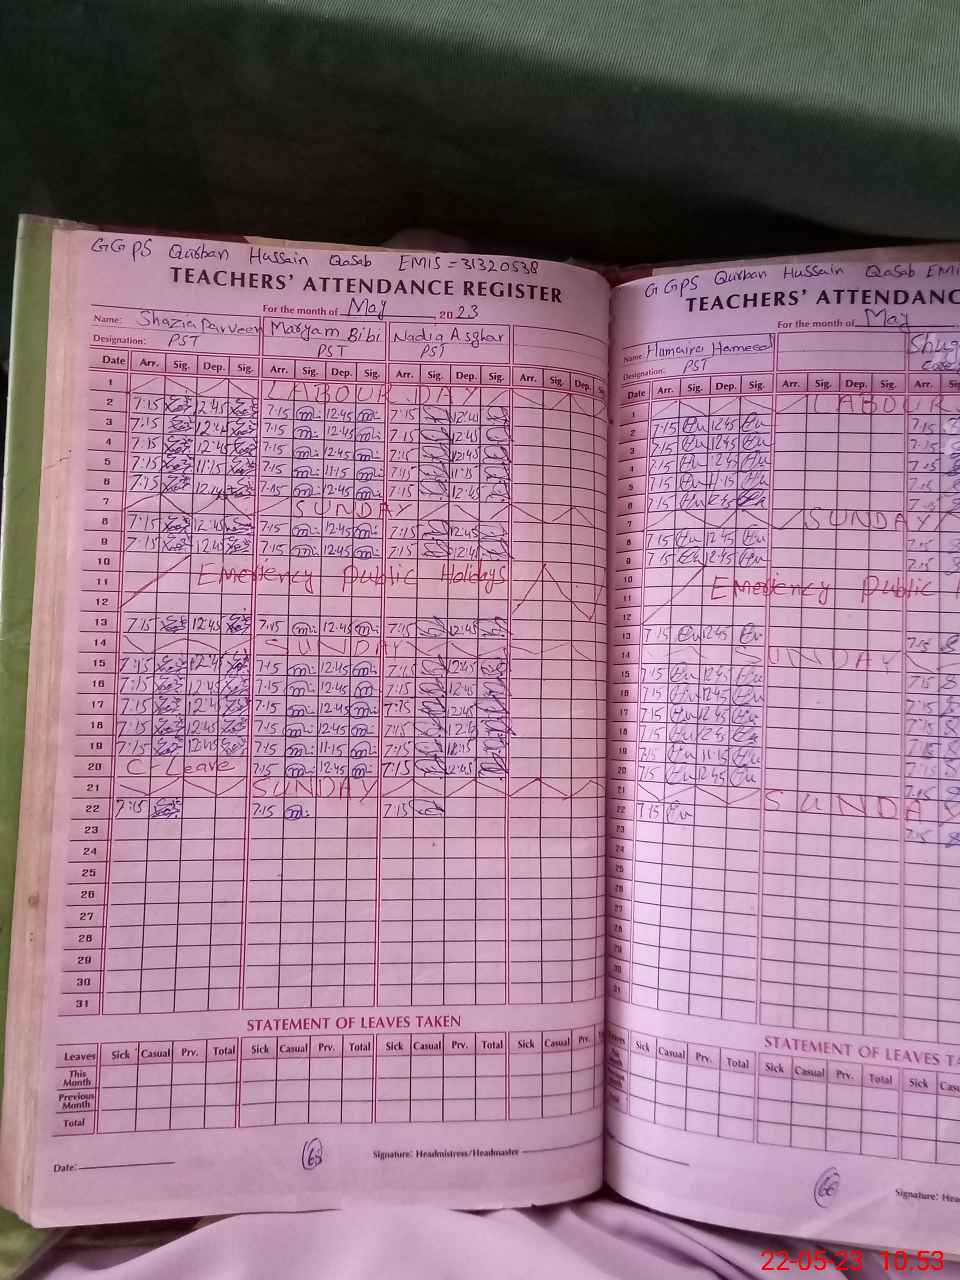 GGPS Qurban Hussain Qasab EMIS = 31320538
TEACHERS' ATTENDANCE REGISTER
For the month of May 2023
Name: Shazia Parveen Maryam Bibi Nadia Asghar
Designation: PST PST PST
Date Arr. Sig. Dep. Sig. Arr. Sig. Dep. Sig. Arr. Sig. Dep. Sig. Arr. Sig. Dep.
1 LABOUR DAY
2 7:15 12:45 7:15 12:45 7:15 12:45
3 7:15 12:45 7:15 12:45 7:15 12:45
4 7:15 12:45 7:15 12:45 7:15 12:45
5 7:15 11:15 7:15 11:15 7:15 11:15
6 7:15 12:45 7:15 12:45 7:15 12:45
7 SUNDAY
8 7:15 12:45 7:15 12:45 7:15 12:45
9 7:15 12:45 7:15 12:45 7:15 12:45
10
11 Emergency Public Holidays
12
13 7:15 12:45 7:15 12:45 7:15 12:45
14 SUNDAY
15 7:15 12:45 7:15 12:45 7:15 12:45
16 7:15 12:45 7:15 12:45 7:15 12:45
17 7:15 12:45 7:15 12:45 7:15 12:45
18 7:15 12:45 7:15 12:45 7:15
19 7:15 7:15 11:15 7:15
20 C-Leave 7:15 12:45 7:15 12:45
21 SUNDAY
22 7:15 7:15 7:15
23
24
25
26
27
28
29
30
31
STATEMENT OF LEAVES TAKEN
Leaves Sick Casual Prv. Total Sick Casual Prv. Total Sick Casual Prv. Total Sick Casual Prv.
This Month
Previous Month
Total
Date: Signature: Headmistress/Headmaster
65
GGPS Qurban Hussain Qasab EMI
TEACHERS' ATTENDANC
For the month of May
Name: Humaira Hameed
Designation: PST
Date Arr. Sig. Dep. Sig. Arr. Sig. Dep. Sig. Arr.
1 LABOUR
2 7:15 12:45 7:15
3 7:15 12:45 7:15
4 7:15 12:45 7:15
5 7:15 11:15 7:15
6 7:15 12:45 7:15
7 SUNDAY
8 7:15 12:45 7:15
9 7:15 12:45 7:15
10
11 Emergency Public
12
13 7:15 12:45 7:15
14 SUNDAY
15 7:15 12:45 7:15
16 7:15 12:45 7:15
17 7:15 12:45 7:15
18 7:15 12:45 7:15
19 7:15 11:15 7:15
20 7:15 12:45 7:15
21 SUNDA
22 7:15 7:15
23
24
25
26
27
28
29
30
31
STATEMENT OF LEAVES TA
Sick Casual Prv. Total Sick Casual Prv. Total Sick
66
Signature: Hea
22-05-23 10.53